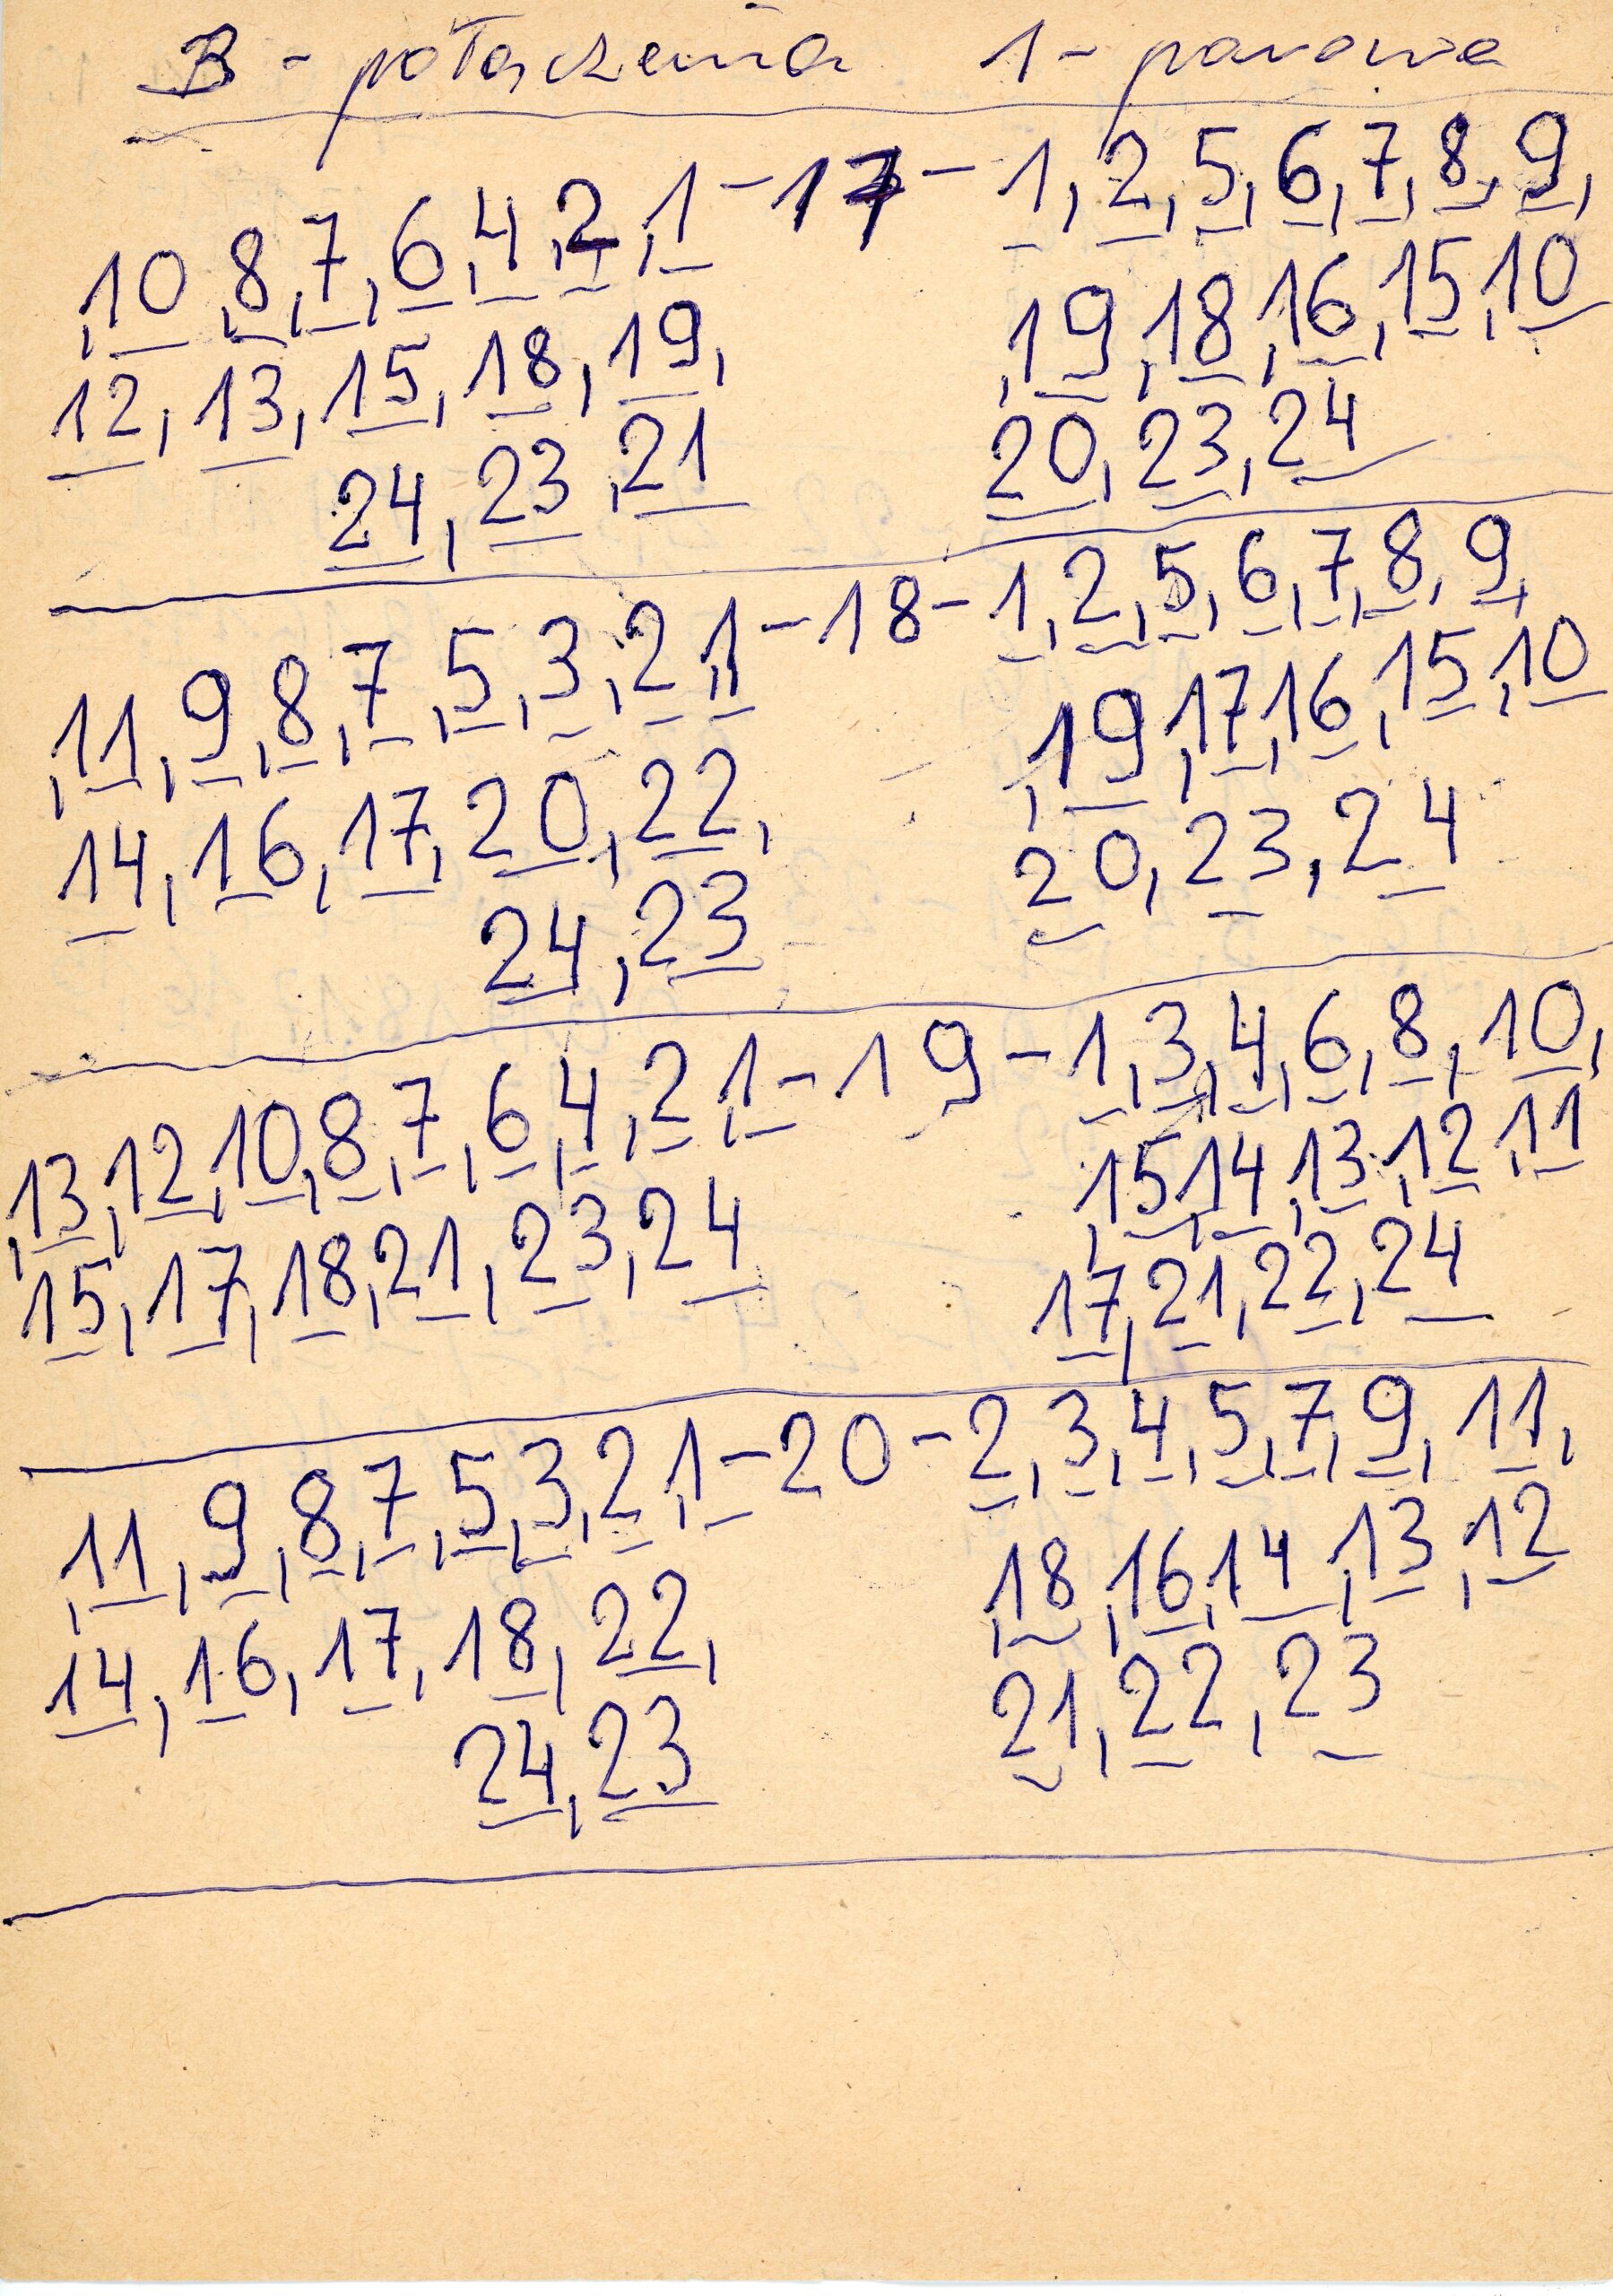 B - połączenia 1 - parowe
,10,8,7,6,4,2,1 - 17 - 1,2,5,6,7,8,9,
12,13,15,18,19, ,19,18,16,15,10
24,23,21 20,23,24
,11,9,8,7,5,3,2,1 - 18 - 1,2,5,6,7,8,9,
14,16,17,20,22, ,19,17,16,15,10
24,23 20,23,24
,13,12,10,8,7,6,4,2,1 - 19 - 1,3,4,6,8,10,
15,17,18,21,23,24 ,15,14,13,12,11
17,21,22,24
,11,9,8,7,5,3,2,1 - 20 - 2,3,4,5,7,9,11,
14,16,17,18,22, ,18,16,14,13,12
24,23 21,22,23